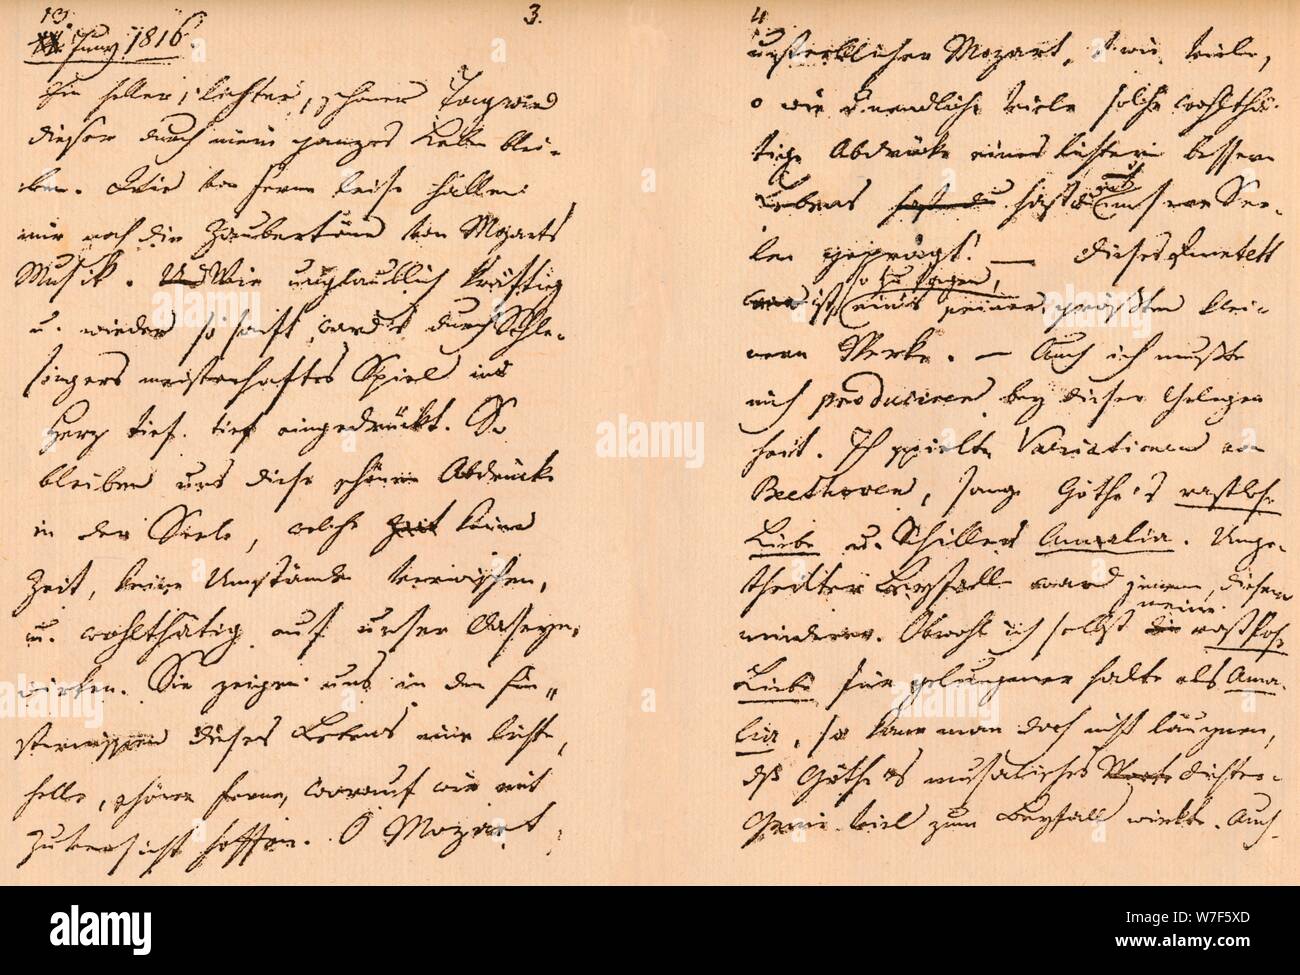 13. 3.
Juny 1816.
Ein heller, lichter, schöner Tag wird
dieser durch mein ganzes Leben blei-
ben. Wie von ferne leise hallen
mir noch die Zaubertöne von Mozarts
Musik. Und Wie unglaublich kräftig
u. wieder so sanft, ward's durch Schle-
singers meisterhaftes Spiel ins
Herz tief, tief eingedrückt. So
bleiben uns diese schöne Abdrücke
in der Seele, welche Zeit keine
Zeit, keine Umstände verwischen,
u. wohlthätig auf unser Daseyn
wirken. Sie zeigen uns in den Fin-
sternissen dieses Lebens eine lichte,
helle, schöne Ferne, worauf wir mit
Zuversicht hoffen. O Mozart,
4.
unsterblicher Mozart, wie viele,
o wie unendlich viele solche wohlthä-
tige Abdrücke eines lichtern bessern
Lebens hast du hast du in unsere See-
len geprägt! — Dieses Quintett
ist so zu sagen, eines seiner größten klei-
nern Werke. — Auch ich mußte
mich produciren bey dieser Gelegen
heit. Ich spielte Variationen von
Beethoven, sang Göthe's rastlose
Liebe u. Schillers Amalia. Unge-
theilter Beyfall ward jenem, diesem
minderer. Obwohl ich selbst die meine rastlose
Liebe für gelungener halte als Ama-
lia, so kann man doch nicht läugnen,
daß Göthe's musikalisches Dichter-
Genie viel zum Beyfall wirkte. Auch
alamy
Image ID: W7F5XD
www.alamy.com